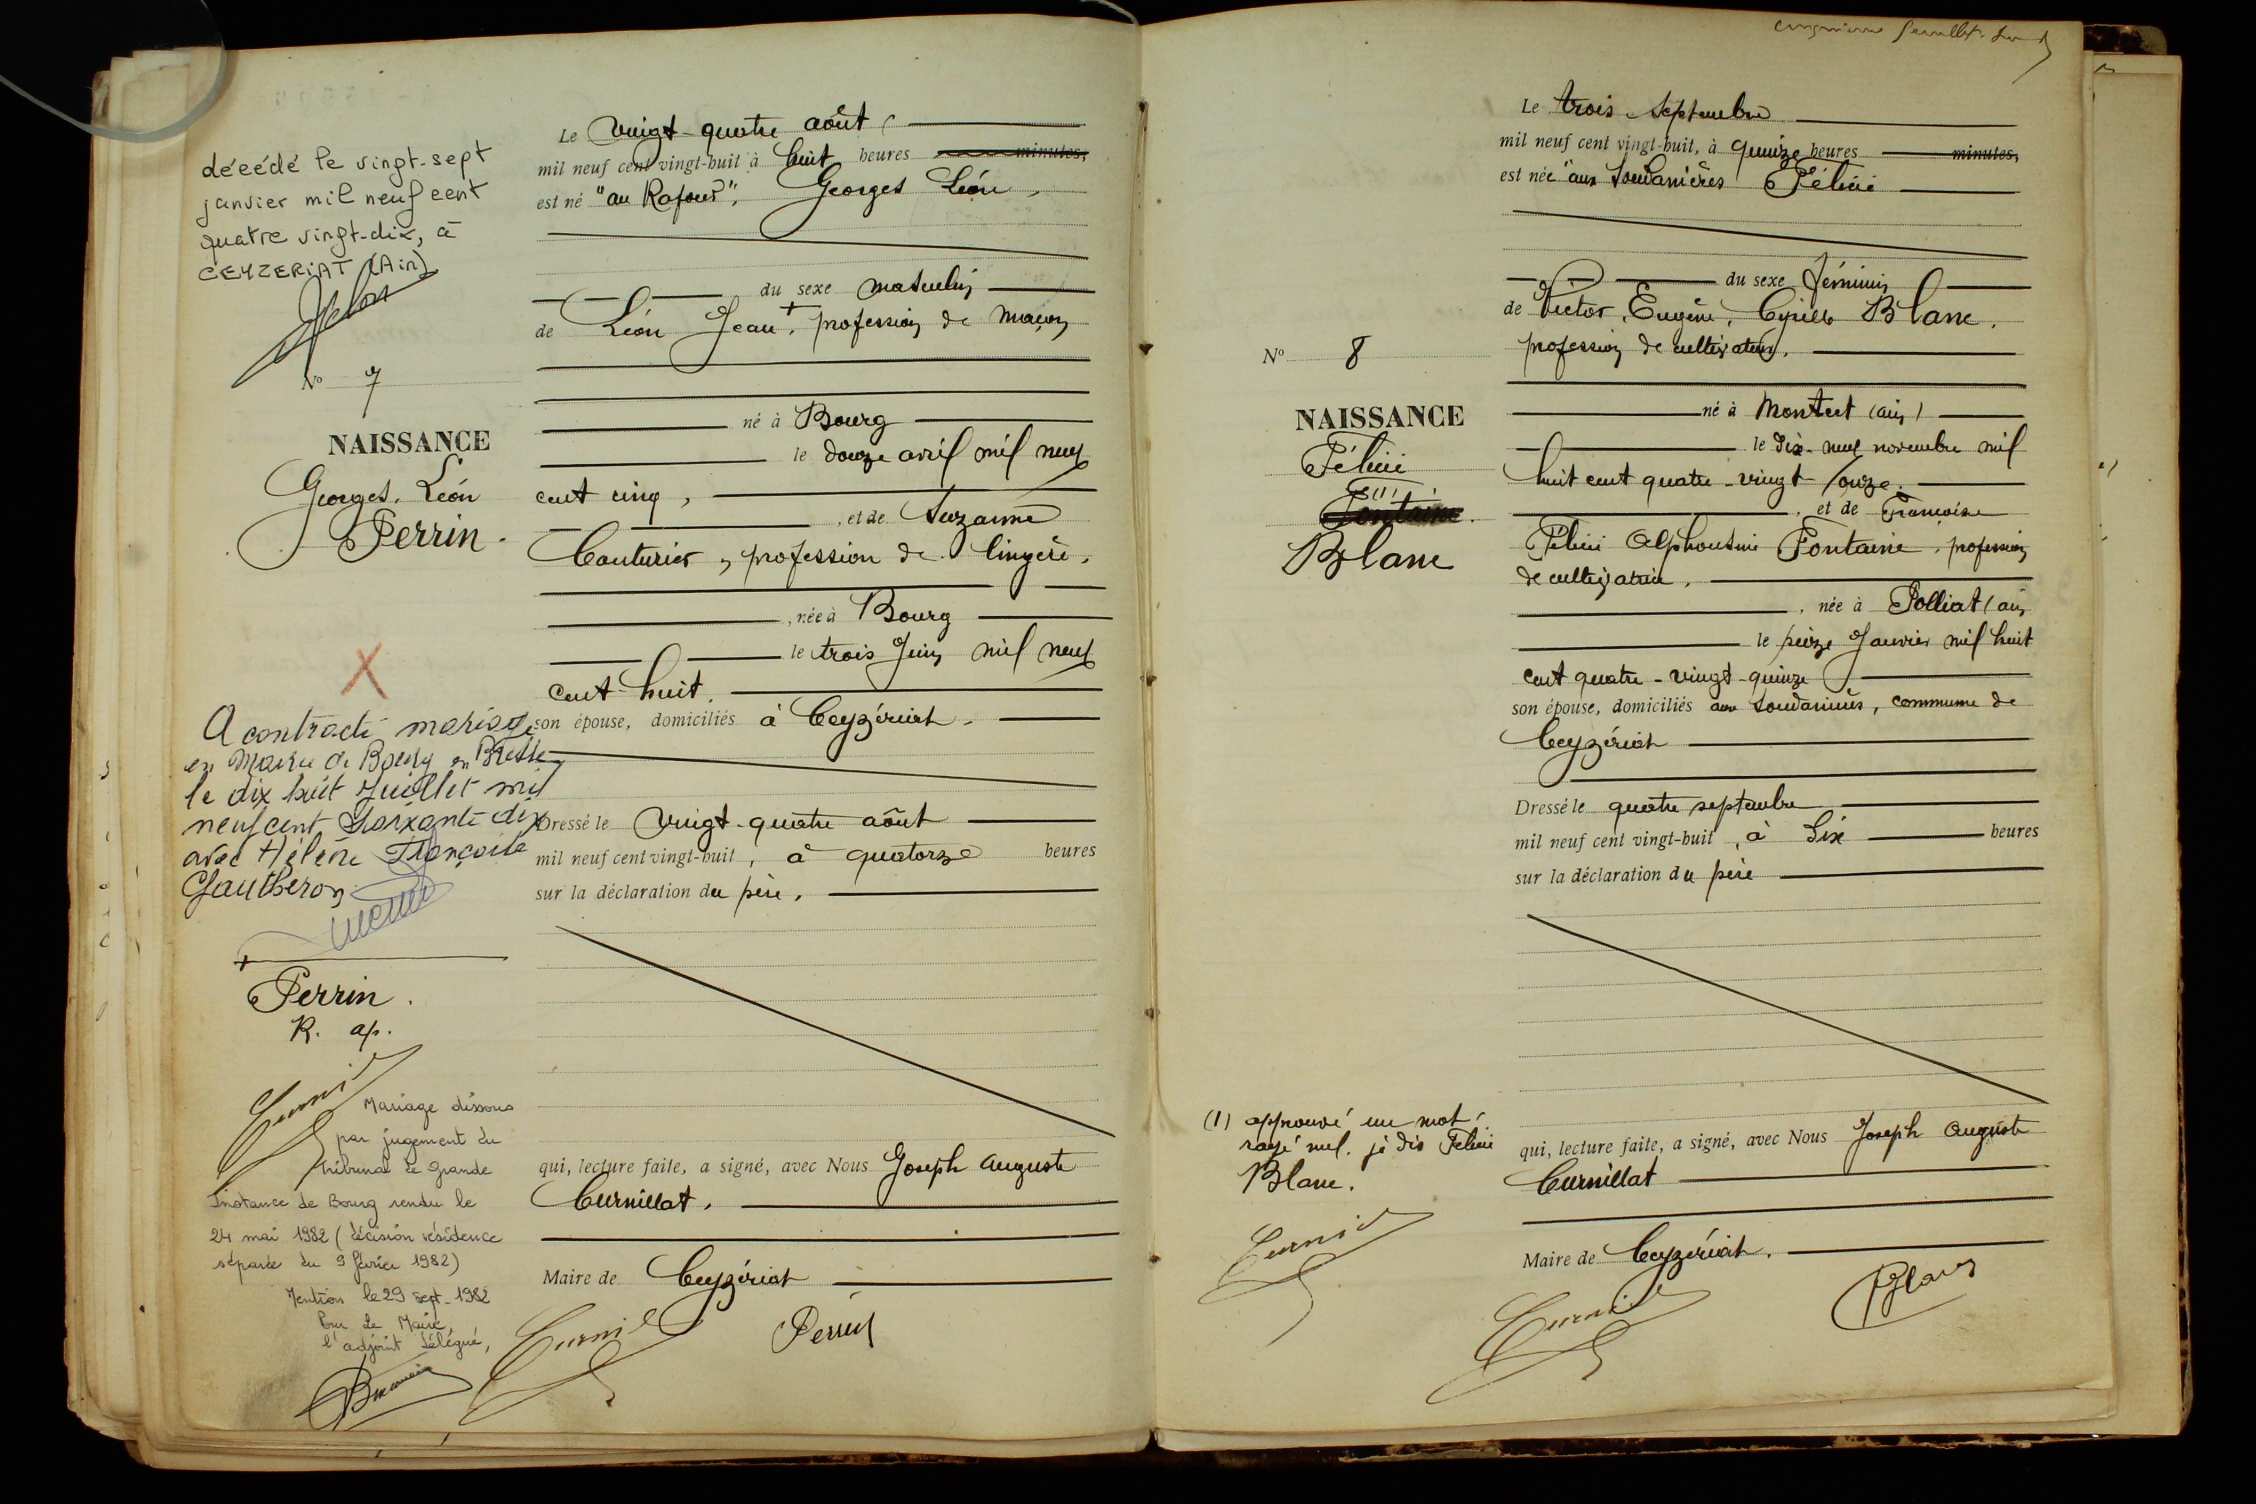 décédé le vingt-sept
janvier mil neuf cent
quatre vingt-dix, à
CEYZERIAT (Ain)
N° 7
NAISSANCE
Georges. Léon
Perrin.
X
A contracté mariage
en Mairie de Bourg en Bresse
le dix huit juillet mil
neuf cent soixante dix
avec Hélène Françoise
Gautheron
+
Perrin.
R. ap.
Mariage dissous
par jugement du
tribunal de Grande
Instance de Bourg rendu le
24 mai 1982 (décision résidence
séparée du 9 février 1982)
Mention le 29 sept. 1982
Pour le Maire,
l'adjoint délégué,
Le vingt-quatre août,
mil neuf cent vingt-huit à huit heures minutes,
est né "au Rafour", Georges Léon,
du sexe masculin
de Léon Jean +, profession de maçon
né à Bourg
le douze avril mil neuf
cent cinq,
, et de Suzanne
Couturier, profession de lingère,
, née à Bourg
le trois Juin mil neuf
cent huit,
son épouse, domiciliés à Ceyzériat.
Dressé le vingt-quatre août
mil neuf cent vingt-huit, à quatorze heures
sur la déclaration du père,
qui, lecture faite, a signé, avec Nous Joseph Auguste
Curnillat,
Maire de Ceyzériat
Perrin
feuillet
N° 8
NAISSANCE
Félicie
(1)
Fontaine.
Blanc
(1) approuvé un mot
rayé nul. je dis Félicie
Blanc.
Le trois Septembre
mil neuf cent vingt-huit, à quinze heures minutes,
est née "aux Soudanières Félicie
du sexe féminin
de Victor, Eugène, Cyrille Blanc,
profession de cultivateur,
né à Montcet (ain)
le dix-neuf novembre mil
huit cent quatre-vingt-onze.
, et de Françoise
Félicie Alphonsine Fontaine, profession
de cultivatrice,
, née à Polliat (ain
le seize Janvier mil huit
cent quatre-vingt-quinze
son épouse, domiciliés aux Soudanières, commune de
Ceyzériat
Dressé le quatre septembre
mil neuf cent vingt-huit, à Six heures
sur la déclaration du père
qui, lecture faite, a signé, avec Nous Joseph Auguste
Curnillat
Maire de Ceyzériat.
Blanc